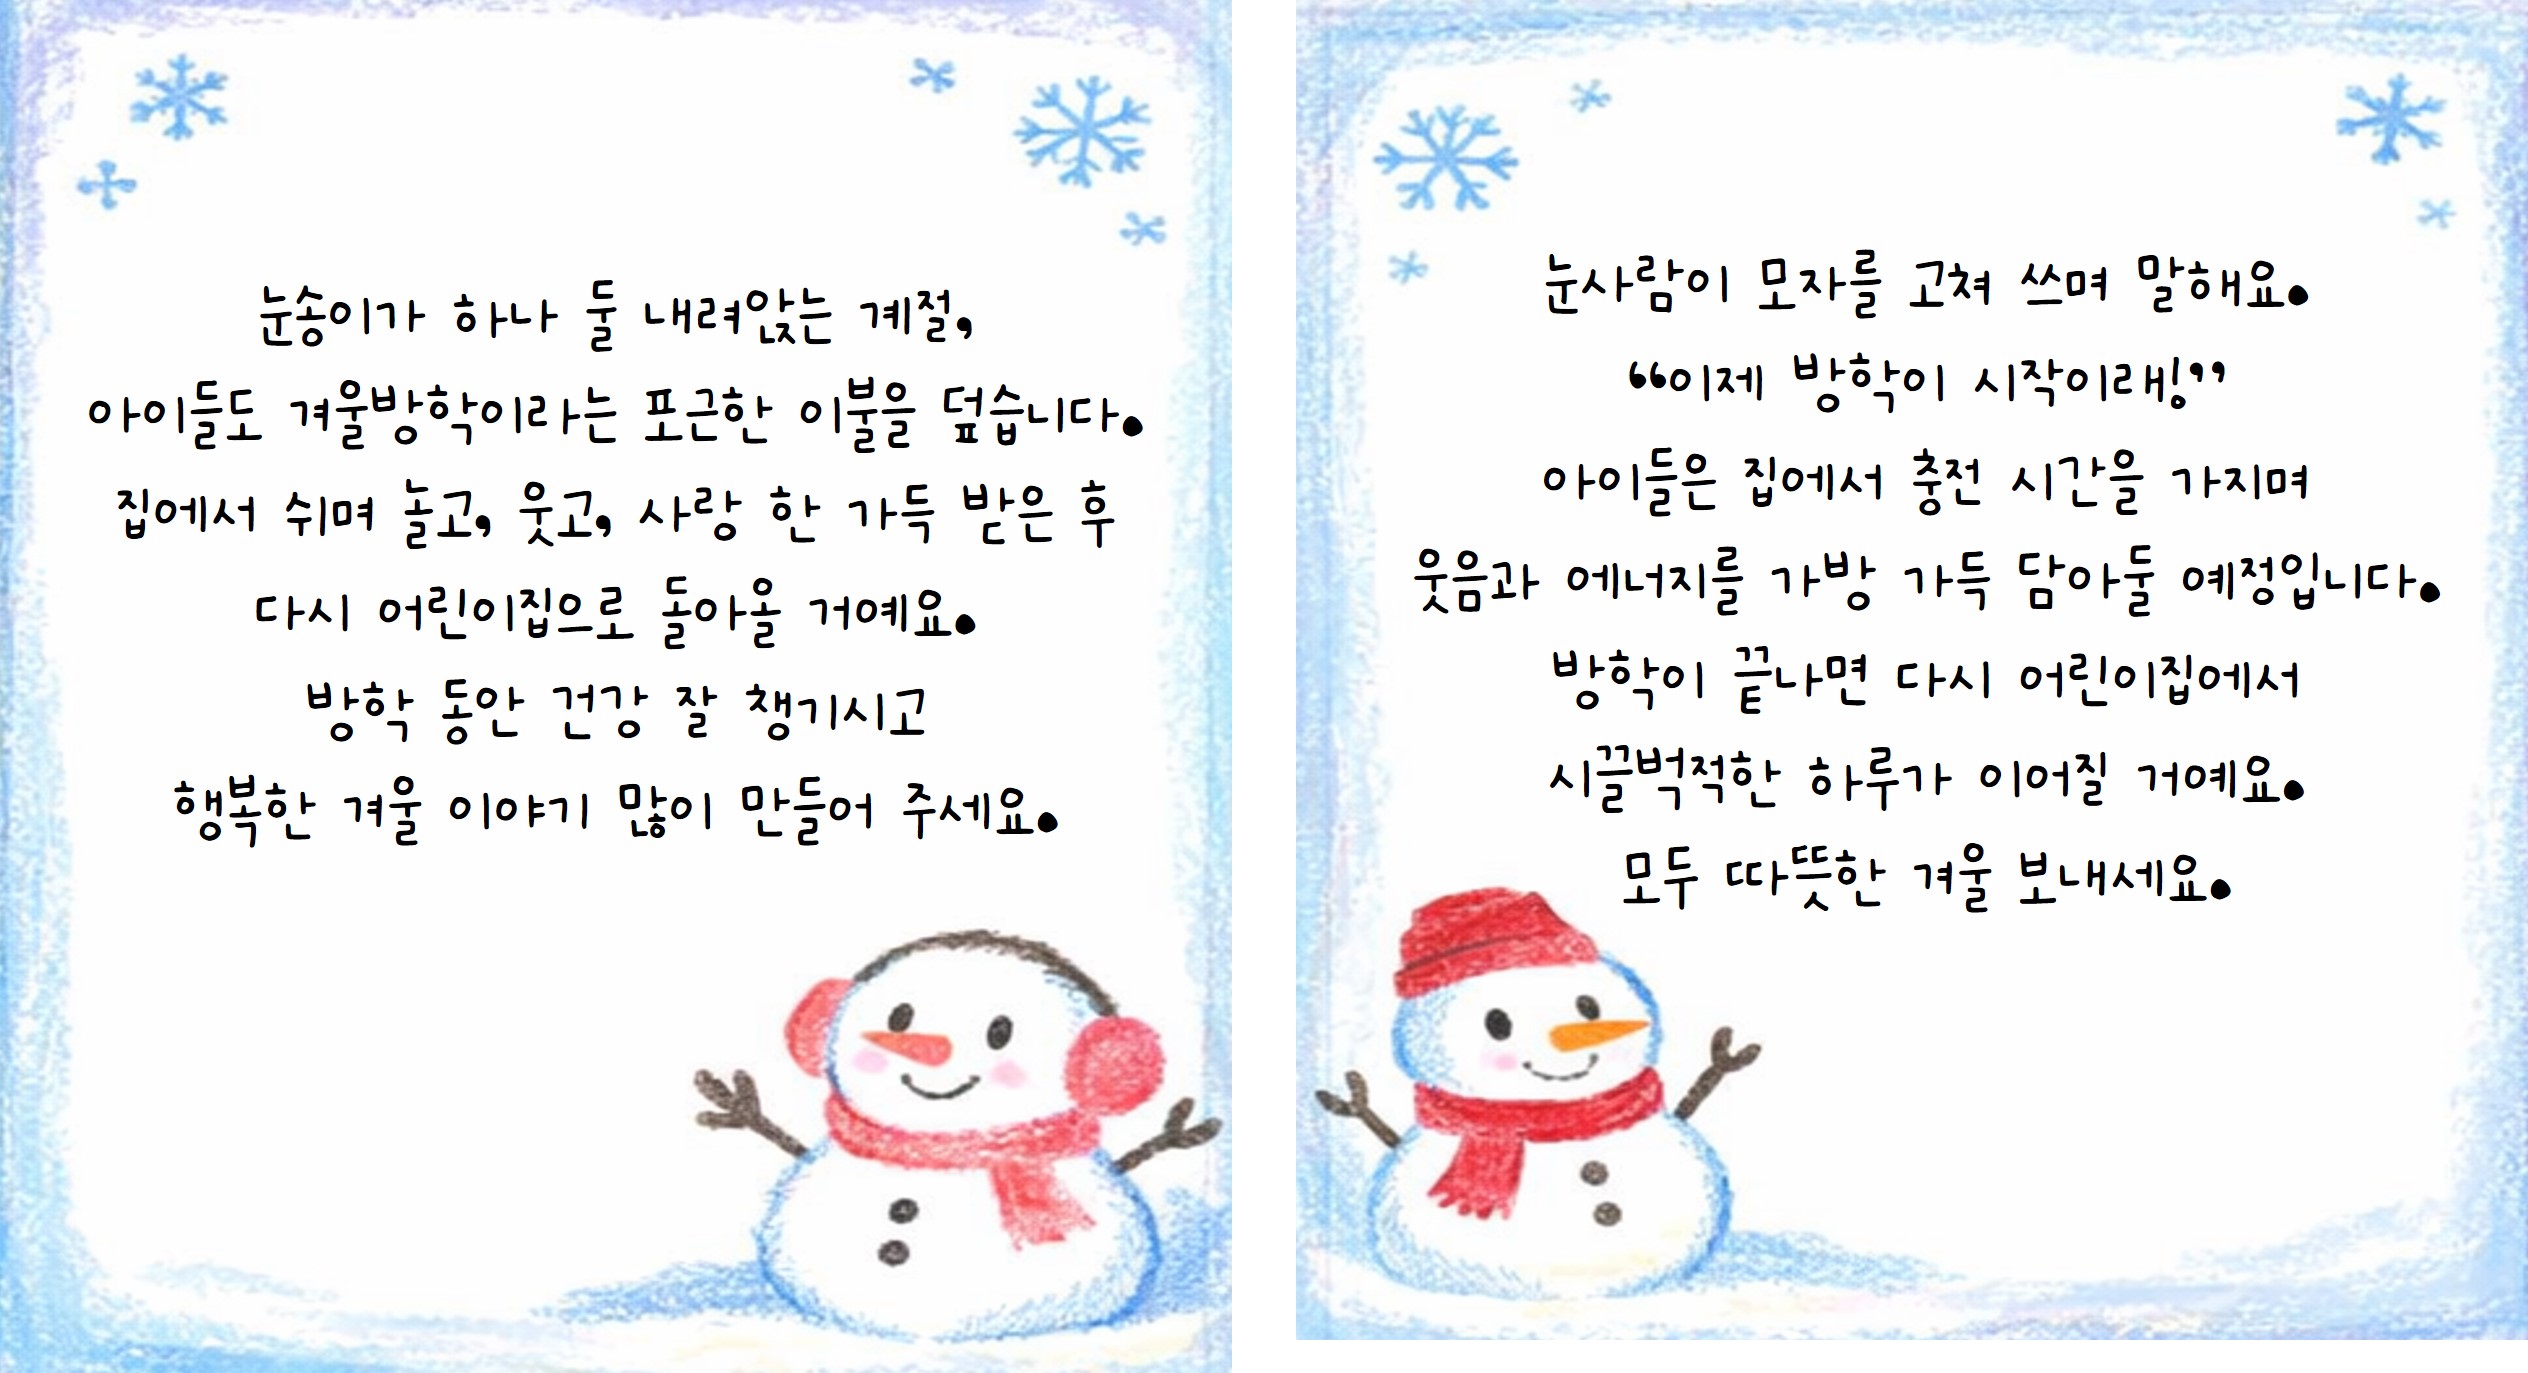 눈송이가 하나 둘 내려앉는 계절,
아이들도 겨울방학이라는 포근한 이불을 덮습니다.
집에서 쉬며 놀고, 웃고, 사랑 한 가득 받은 후
다시 어린이집으로 돌아올 거예요.
방학 동안 건강 잘 챙기시고
행복한 겨울 이야기 많이 만들어 주세요.
눈사람이 모자를 고쳐 쓰며 말해요.
“이제 방학이 시작이래!”
아이들은 집에서 충전 시간을 가지며
웃음과 에너지를 가방 가득 담아둘 예정입니다.
방학이 끝나면 다시 어린이집에서
시끌벅적한 하루가 이어질 거예요.
모두 따뜻한 겨울 보내세요.